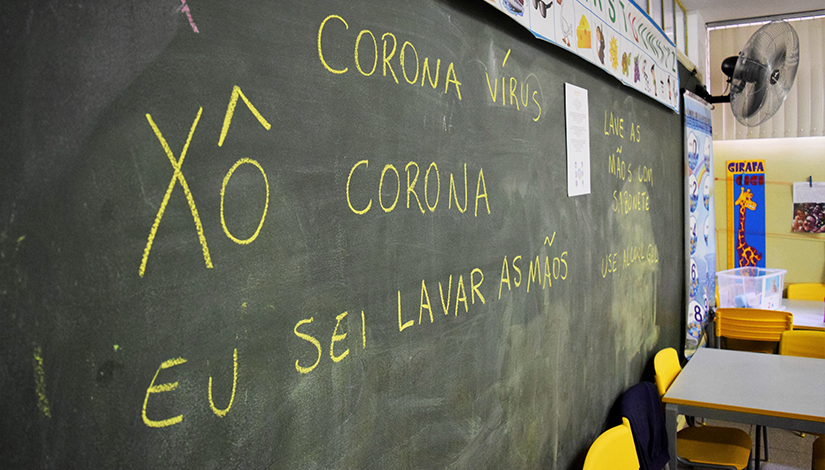 CORONA VÍRUS
XÔ CORONA
EU SEI LAVAR AS MÃOS
LAVE AS
MÃOS COM
SABONETE
USE ALCOOL GEL
GIRAFA
GIGI
8